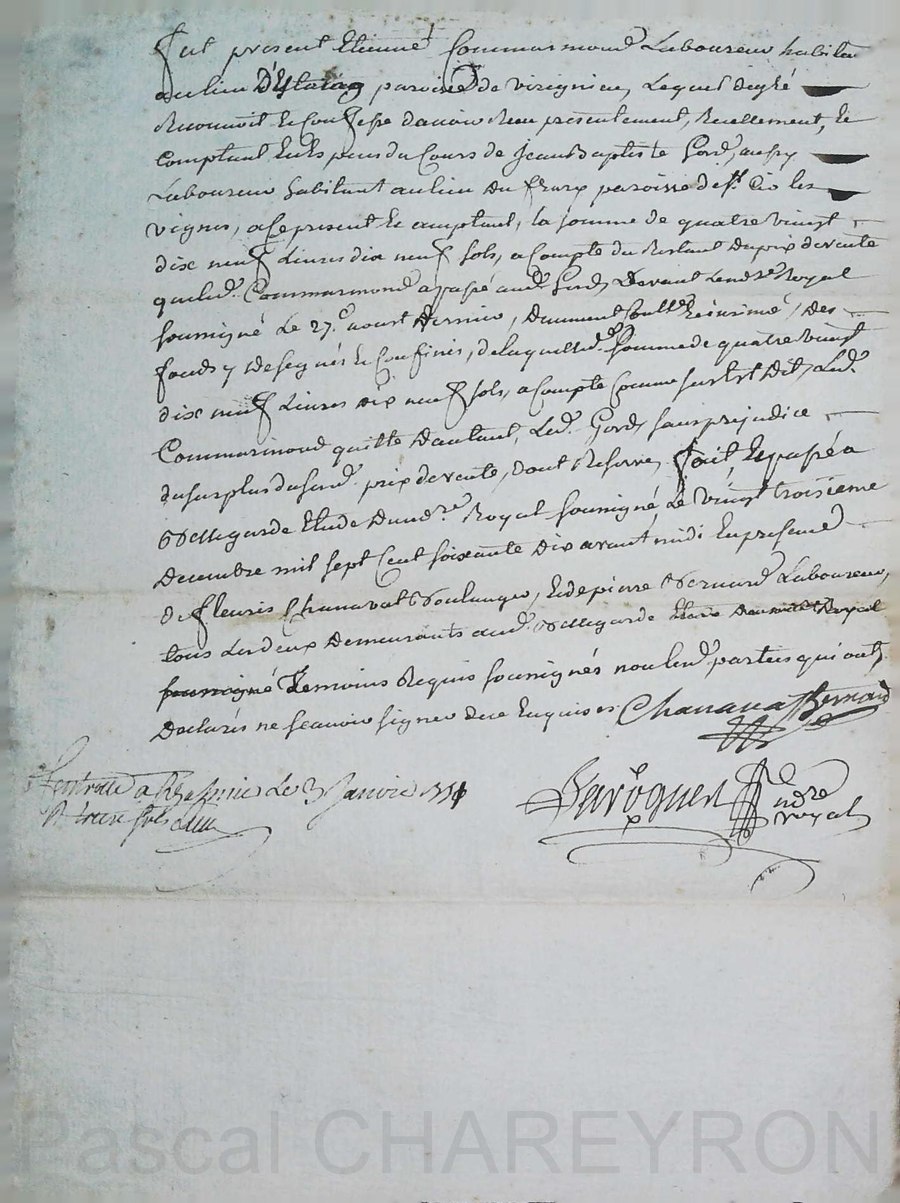 fut présent Etienne Commarmond Laboureur habitan
au lieu paroisse de virignieu, Lequel de gré
Reconnoit et Confesse d'avoir Reçu présentement, Reellement, et
Comptant En Espèces du Cours de Jean Baptiste Gord, aussy
Laboureur habitant au lieu du paroisse de st les
vignes, a ce présent et acceptant, la somme de quatre vingt
dix neuf Livres dix neuf sols, a Compte du Restant du prix de vente
que led. Commarmond a passé aud. Gord, Devant Le nore Royal
soussigné Le 27e aoust Dernier, Duement Coullé et insinué, Des
fonds y Designés et Confinés, de laquelle d. somme de quatre vingt
dix neuf Livres dix neuf sols, a Compte Comme sus est Dit, Led.
Commarmond quitte D'autant, Led. Gord, sans prejudice
du surplus dud. prix de vente, dont Reserve, fait, Et passé a
Bellegarde Etude Dud. nre Royal soussigné Le vingt troisieme
Decembre mil sept Cent soixante dix avant midi En presence
de fleuris Chanavat Boulanger, Et de pierre Bernard Laboureur,
tous Les deux Demeurants aud. Bellegarde
soussigné Temoins Requis soussignés non lesd. parties qui ont
Declarés ne sçavoir signer de ce Enquises Chanavat Bernard
a Le 3 Janvier 1771
R. treze sols
nore
royal
Pascal CHAREYRON